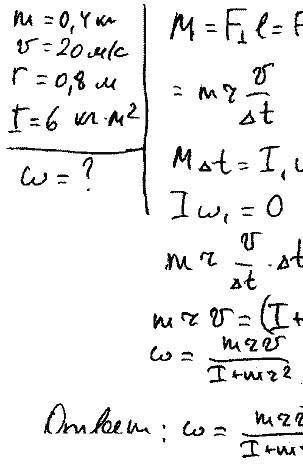 m = 0,4 кг
v = 20 м/с
r = 0,8 м
I = 6 кг·м²
ω = ?
M = F⊥ l = F
= m r v/Δt
M Δt = I₁ ω
I ω₁ = 0
m r v/Δt · Δt
m r v = (I +
ω = m r v / (I + m r²)
Ответ: ω = m r v / (I + m r